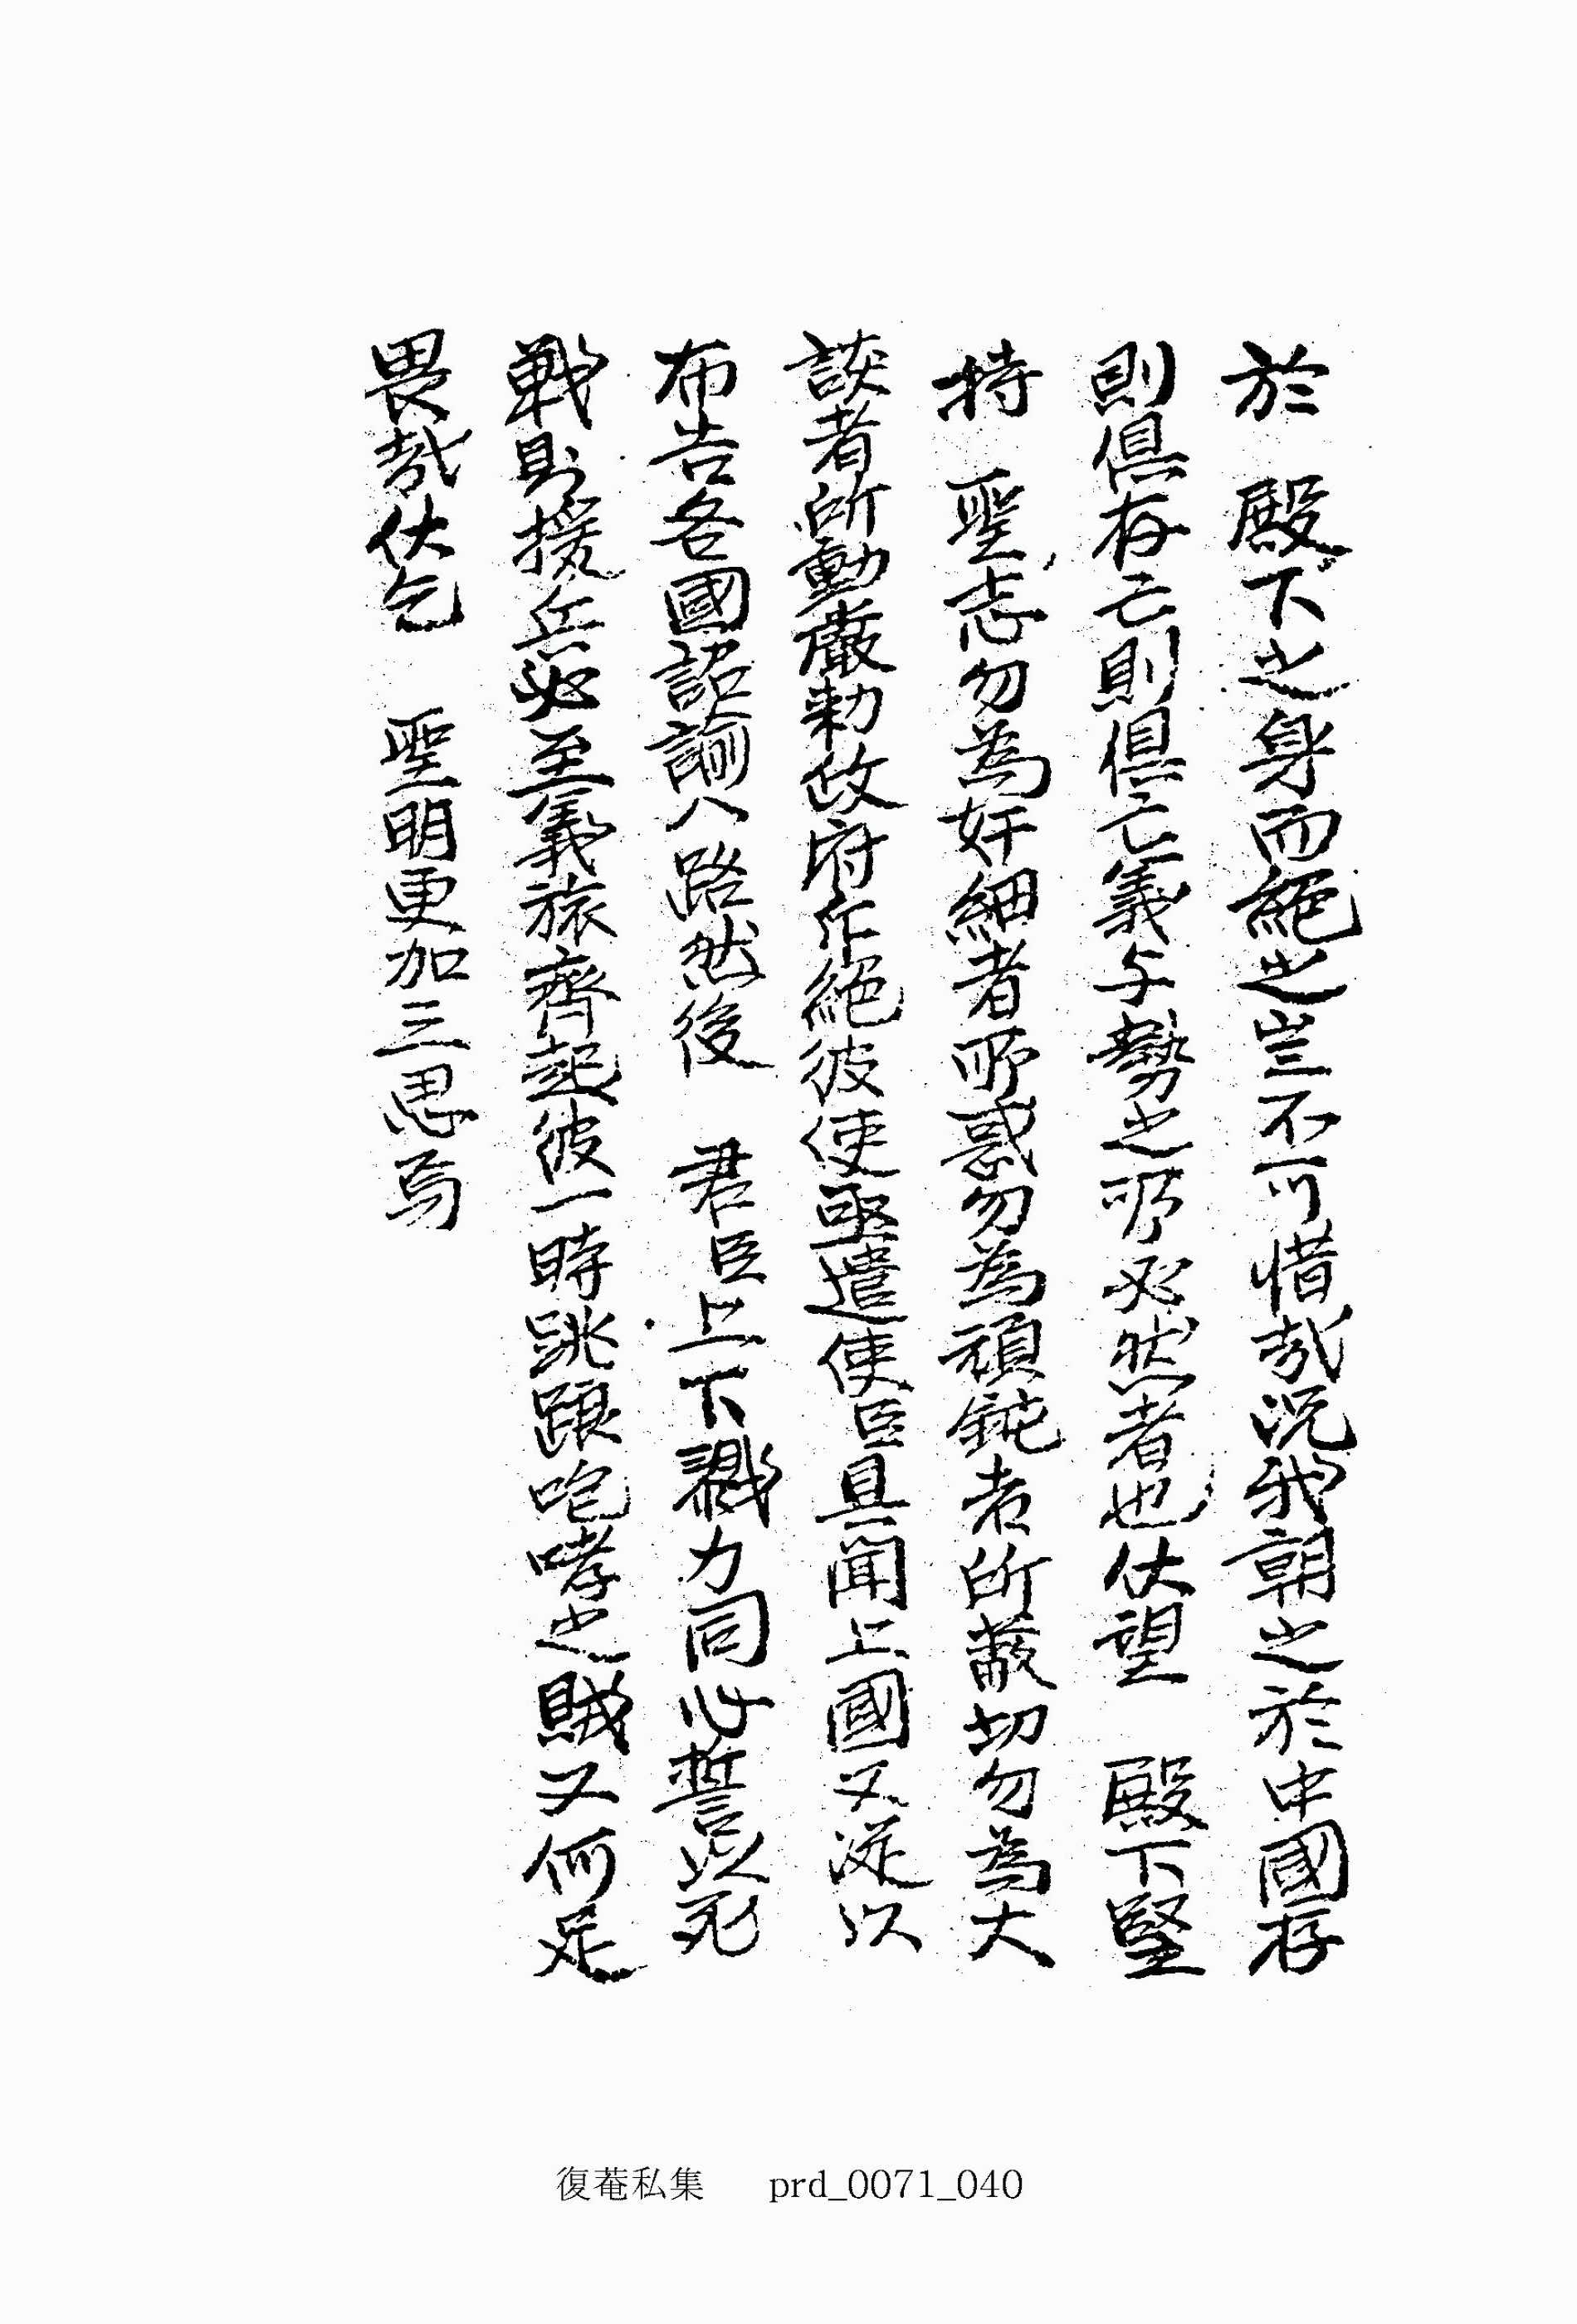 於 殿下之身而絕之豈不可惜哉況我朝之於中國存
則俱存亡則俱亡義与勢之所必然者也伏望 殿下堅
持 聖志勿為奸細者所惑勿為頑鈍者所蔽切勿為大
談者所動嚴勅政府斥絕彼使亟遣使臣具聞上國又遂以
布告各國詔諭八路然後 君臣上下戮力同心誓以死
戰則援兵必至義旅齊起彼一時跳踉咆哮之賊又何足
畏哉伏乞 聖明更加三思焉
復菴私集 prd_0071_040